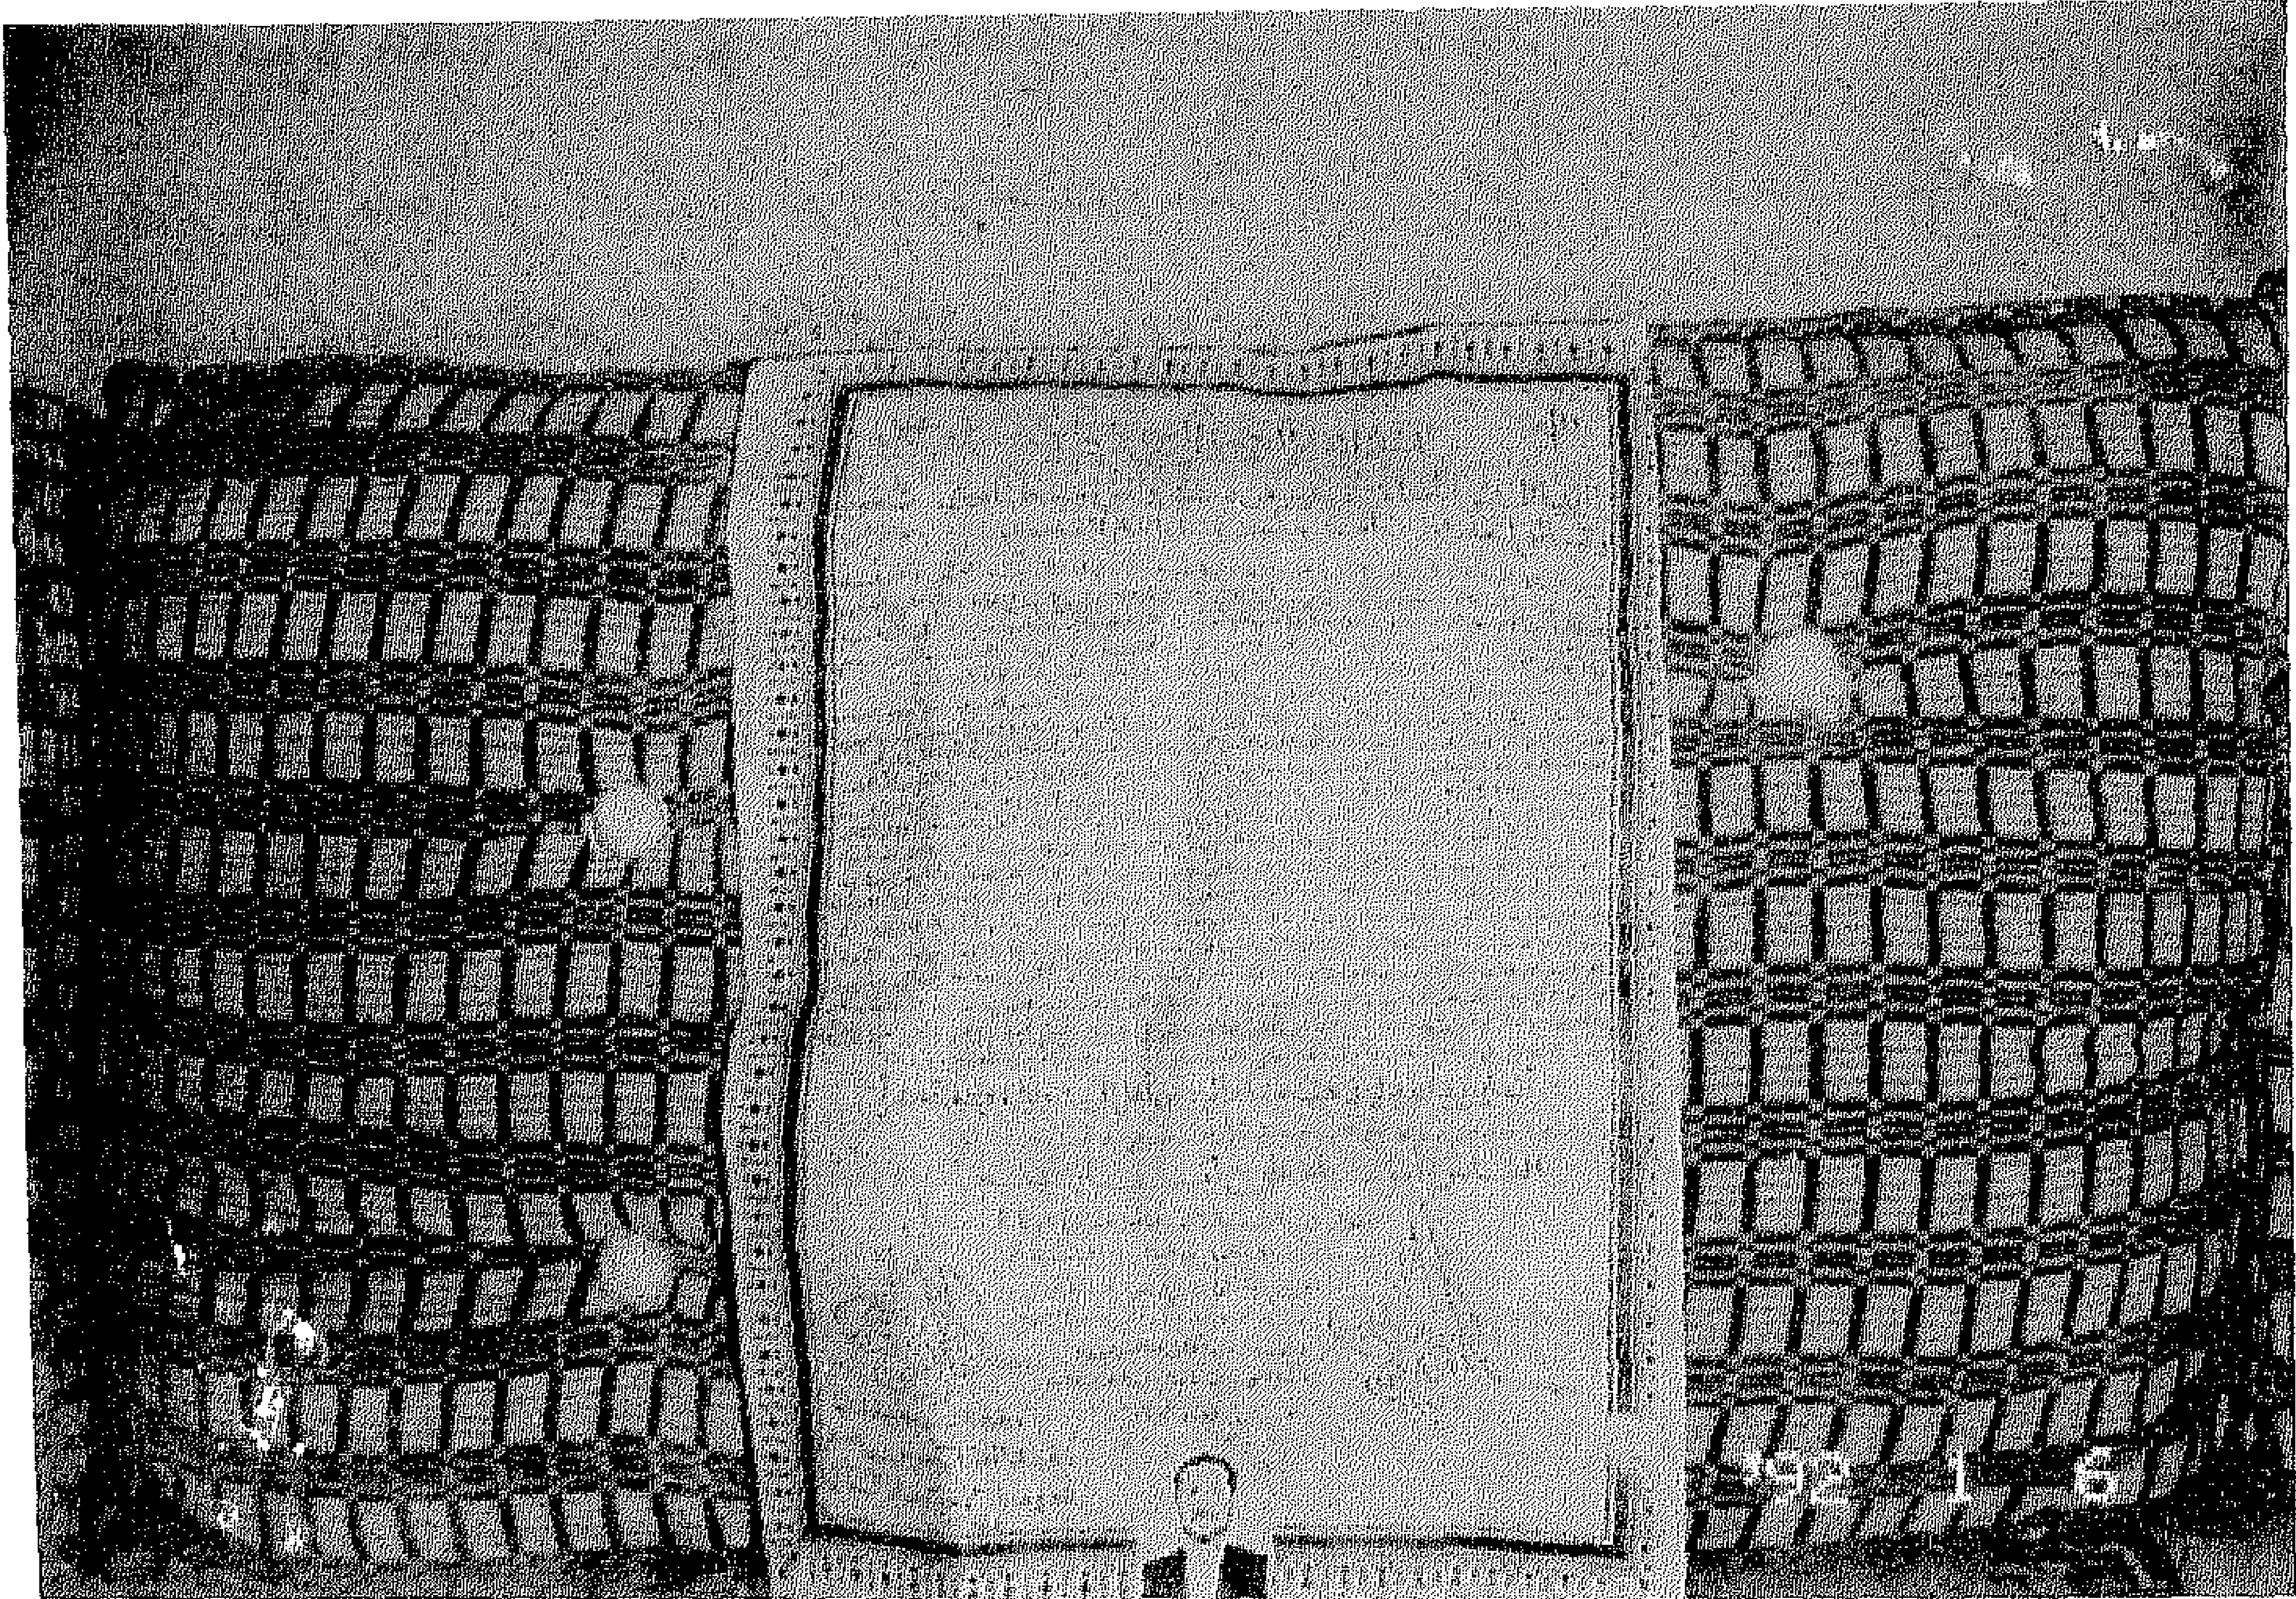 '92 1 6